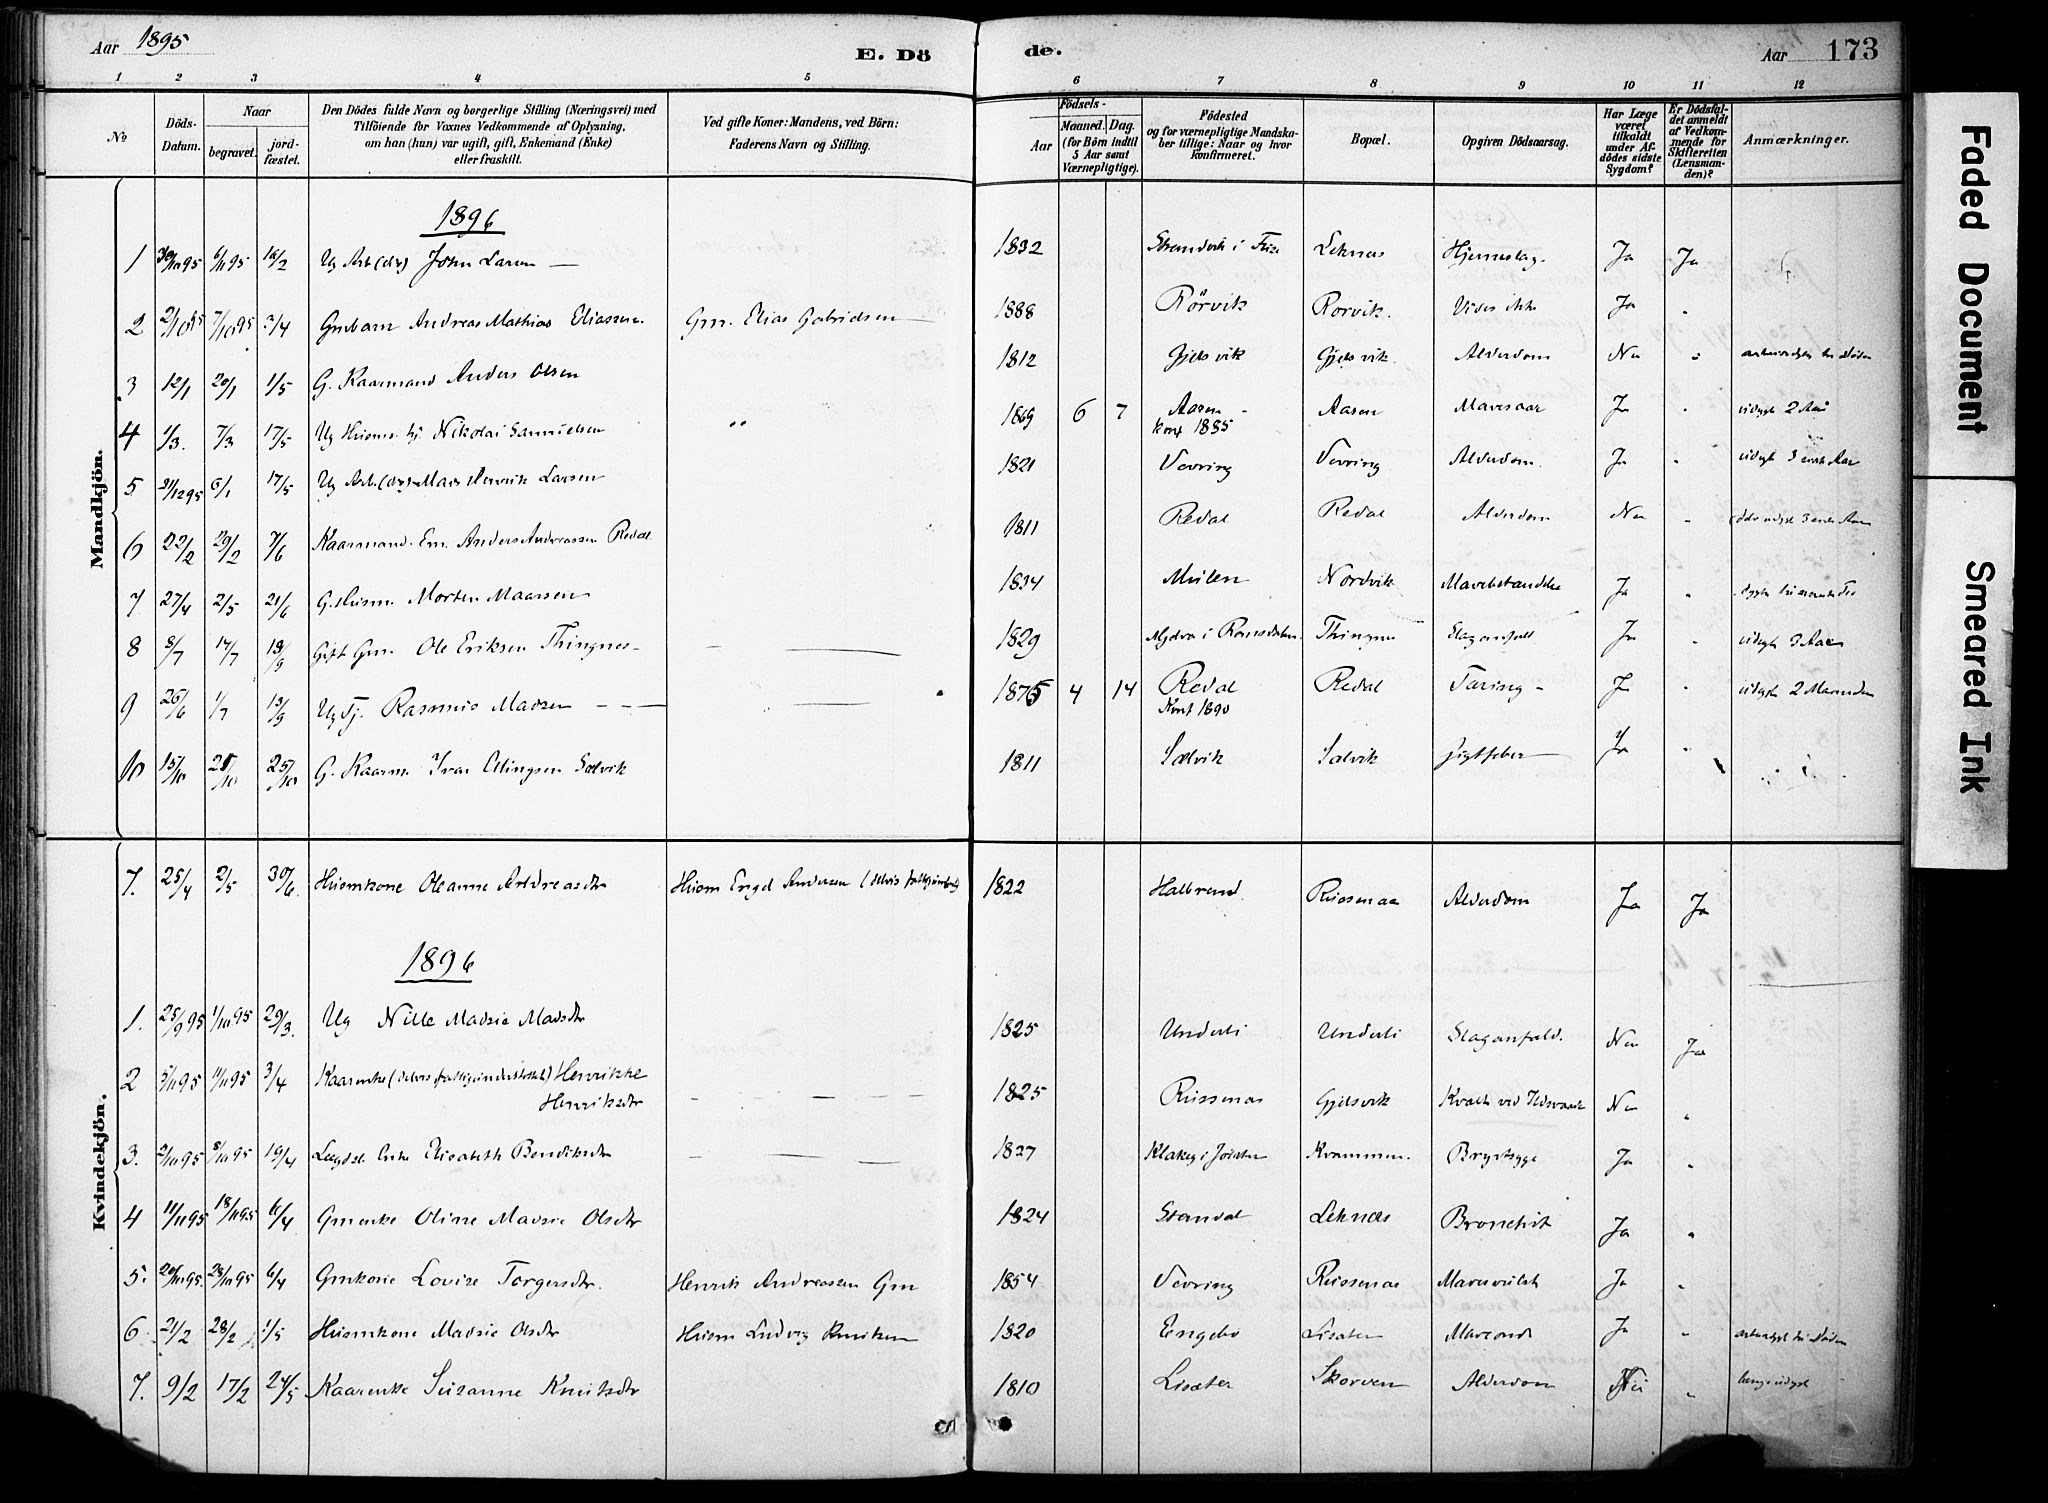 Aar 1895
E. Dö de.
Aar 173
1 2 3 4 5 6 7 8 9 10 11 12
No
Döds-Datum.
Naar
begravet.
jord-fæstet.
Den Dödes fulde Navn og borgerlige Stilling (Næringsvei) med
Tilföiende for Voxnes Vedkommende af Oplysning,
om han (hun) var ugift, gift, Enkemand (Enke)
eller fraskilt.
Ved gifte Koner: Mandens, ved Börn:
Faderens Navn og Stilling.
Födsels-
Aar
Maaned. Dag.
(for Börn indtil
5 Aar samt
Værnepligtige).
Födested
og for værnepligtige Mandska-
ber tillige: Naar og hvor
konfirmeret.
Bopæl.
Opgiven Dödsaarsag.
Har Læge
været
tilkaldt
under Af-
dödes sidste
Sygdom?
Er Dödsfal-
det anmeldt
af Vedkom-
mende for
Skifteretten
(Lensman-
den)?
Anmærkninger.
Mandkjön.
1896
1 30/10 95 6/11 95 16/2 Ug Arb (dr) John Larsen — 1832 Leknes Hjerneslag. Ja Ja
2 2/10 95 7/10 95 3/4 Gmbarn Andreas Mathias Eliassen. Gm. Elias Gabrielsen 1888 Rörvik Rorvik. Vides ikke Ja "
3 12/1 20/1 1/5 G. Kaarmand Anders Olsen 1812 Gjelsvik Gjelsvik Alderdom Nei "
4 1/3. 7/3 17/5 Ug Husm. tj Nikolai Samuelsen " 1869 6 7 Aasen - Aasen Mavesaar Ja " uidygt 2 Aar
konf 1885
5 31/12 95 6/1 17/5 Ug Arb. (dr) Mads Henrik Larsen 1821 Vevring Vevring Alderdom. Ja " uidygt 3 sidste Aar
6 22/2 29/2 7/6 Kaarmand. Em. Anders Andreassen Redal 1811 Redal Redal Alderdom Nei "
7 27/4 2/5 21/6 G. Husm. Morten Maarsen 1834 Mulen Nordvik Mavebetændelse Ja "
8 8/7 17/7 18/9 Gift Gm. Ole Eriksen Thingnes - 1829 i Romsdalen. Thingnes Slaganfald Ja " uidygt 3 Aar
9 26/6 1/7 13/9 Ug tj. Rasmus Madsen — 1875 4 14 Redal Redal Tæring - Ja " uidygt 2 Maaneder
Konf 1890
10 15/10 21/10 25/10 G. Kaarm. Ivar Ellingsen Solvik 1811 Solvik Solvik Gigtfeber Ja "
Kvindekjön.
7. 25/4 2/5 30/6. Husmkone Oleanne Andreasdtr Husm Engel Andersen 1822 Halbrend Russenæs Alderdom Ja Ja
1896
1. 25/9 95 1/10 95 29/3. Ug Nille Madsie Madsdtr 1825 Underli Underli Slaganfald. Nei Ja
2 5/11 95 11/11 95 3/4 Kaarenke (delvis fattigunderstöttet) Henrikke
Henriksdtr 1825 Russenæs Gjelsvik Kvalt ved Ildsvaade Nei "
3. 2/10 95 8/10 95 19/4 Enke Elisabeth Bendiksdtr 1827 Klakeg i Jölster Kvammen. Brystsyge Ja "
4 11/11 95 18/11 95 6/4 Gmenke Oline Madsie Olsdtr 1824 Standal Leknes Bronchit Ja "
5. 20/11 95. 28/11 95 6/4 Gmkone Lovise Torgersdtr. Henrik Andreassen Gm 1854 Vevring Russenæs Ja "
6 21/2 28/2 1/5 Husmkone Madsie Olsdtr Husm Ludvig 1820 Engebö Lisæter Maveondt Ja "
7. 9/2 17/2 24/5 Kaarenke Susanne Knutsdtr 1810 Lisæter Skorven Alderdom Nei " længe uidygt
Faded Document
Smeared Ink